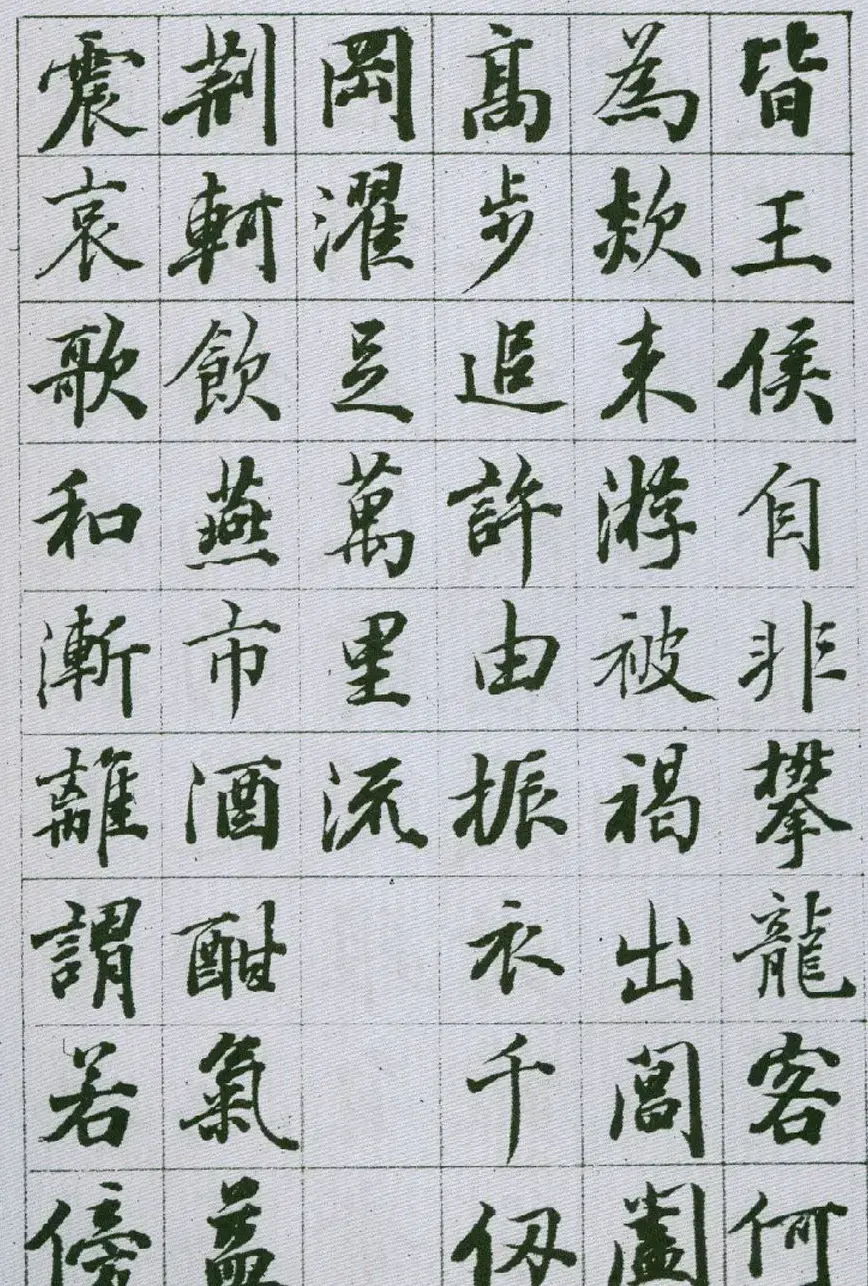 皆王侯自非攀龍客何
為欻来游被褐出閶闔
髙步追許由振衣千仭
岡濯足萬里流
荆軻飲燕市酒酣氣益
震哀歌和漸離謂若傍